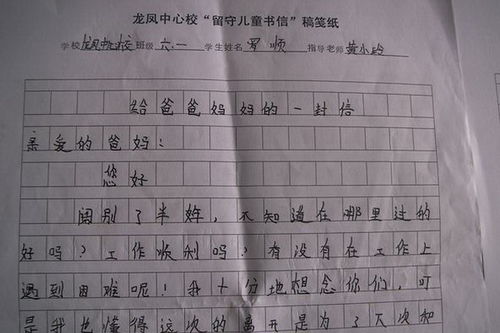 龙凤中心校“留守儿童书信”稿笺纸
学校龙凤中心校 班级六.一 学生姓名罗顺 指导老师黄小玲
给爸爸妈妈的一封信
亲爱的爸妈：
您好
阔别了半年，不知道在哪里过的
好吗？工作顺利吗？有没有在工作上
遇到困难呢！我十分地想念你们，可
是我也懂得这次的离开是为了下次和